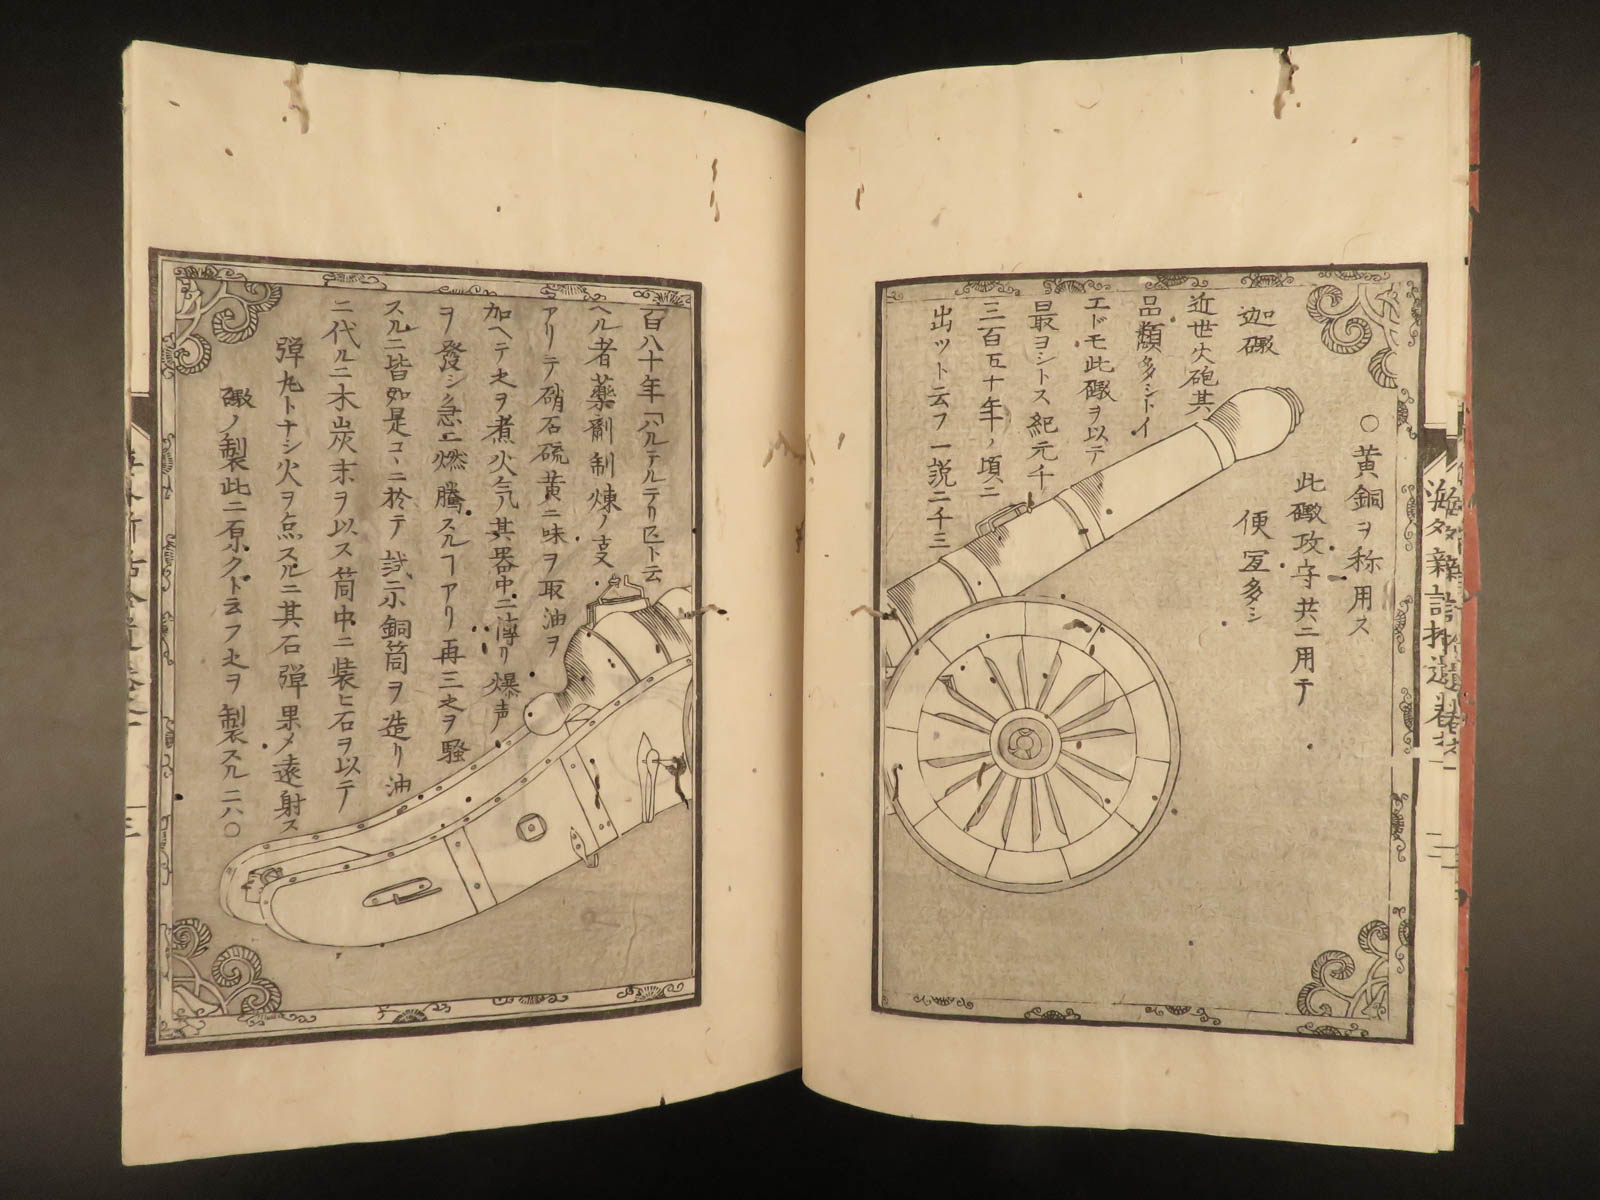 迦礮
近世火砲其
品類多シトイ
エドモ此礮ヲ以テ
最ヨシトス紀元千
三百五十年ノ頃ニ
出ツト云フ一説ニ千三
○黄銅ヲ称用ス
此礮攻守共ニ用テ
便宜多シ
百八十年「バルテルテリ匹ト云
ヘル者藥劑制煉ノ支
アリテ硝石硫黄二味ヲ取油ヲ
加ヘテ之ヲ煮火気其器中ニ薄リ爆声
ヲ發シ急ニ燃騰スルヿアリ再三之ヲ騒
スルニ皆如是コヽニ於テ試ニ小銅筒ヲ造リ油
ニ代ルニ木炭末ヲ以ス筒中ニ装ヒ石ヲ以テ
弾丸トナシ火ヲ点スルニ其石弾果メ遠射ス
礮ノ製此ニ原クト云フ之ヲ製スル二八〇
海外新話拾遺巻之一
三